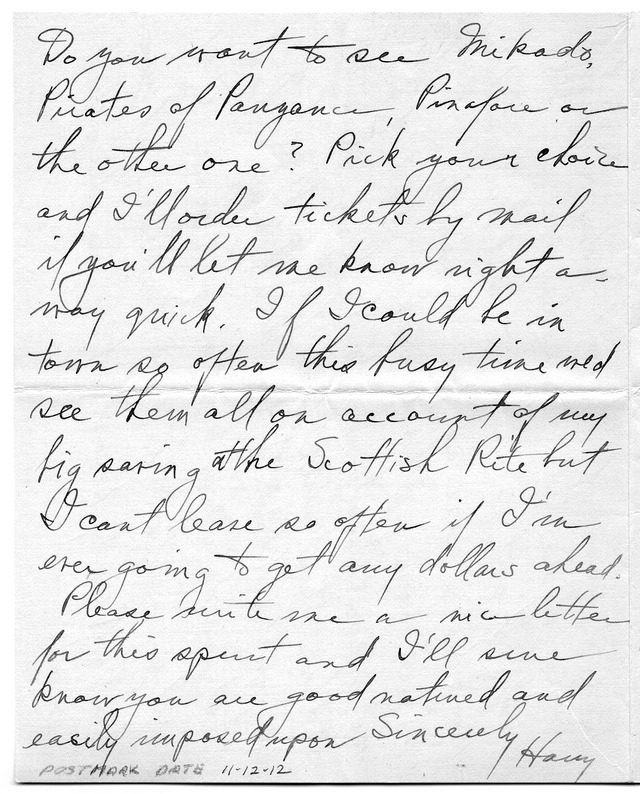 Do you want to see Mikado,
Pirates of Panzance, Pinafore or
the other one? Pick your choice
and I'll order tickets by mail
if you'll let me know right a-
way quick. If I could be in
town so often this busy time we'd
see them all on account of my
big saving at the Scottish Rite but
I cant leave so often if I'm
ever going to get any dollars ahead.
Please write me a nice letter
for this spurt and I'll sure
know you are good natured and
easily imposed upon Sincerely
Harry
POSTMARK DATE 11-12-12